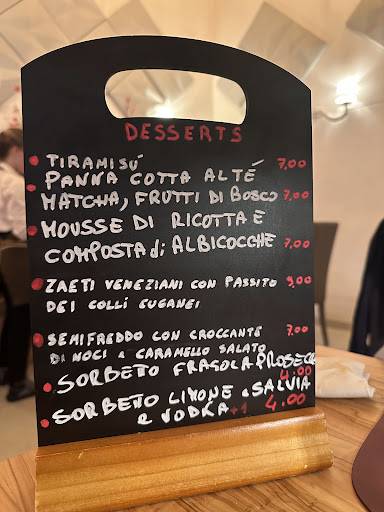 DESSERTS
TIRAMISÚ 7,00
PANNA COTTA AL TÉ
MATCHA, FRUTTI DI BOSCO 7,00
MOUSSE DI RICOTTA E
COMPOSTA di ALBICOCCHE 7,00
ZAETI VENEZIANI CON PASSITO 9,00
DEI COLLI EUGANEI
SEMIFREDDO CON CROCCANTE 7,00
DI NOCI & CARAMELLO SALATO
SORBETO FRAGOLA, PROSECCO
4.00
SORBETO LIMONE & SALVIA
& VODKA +1 4.00